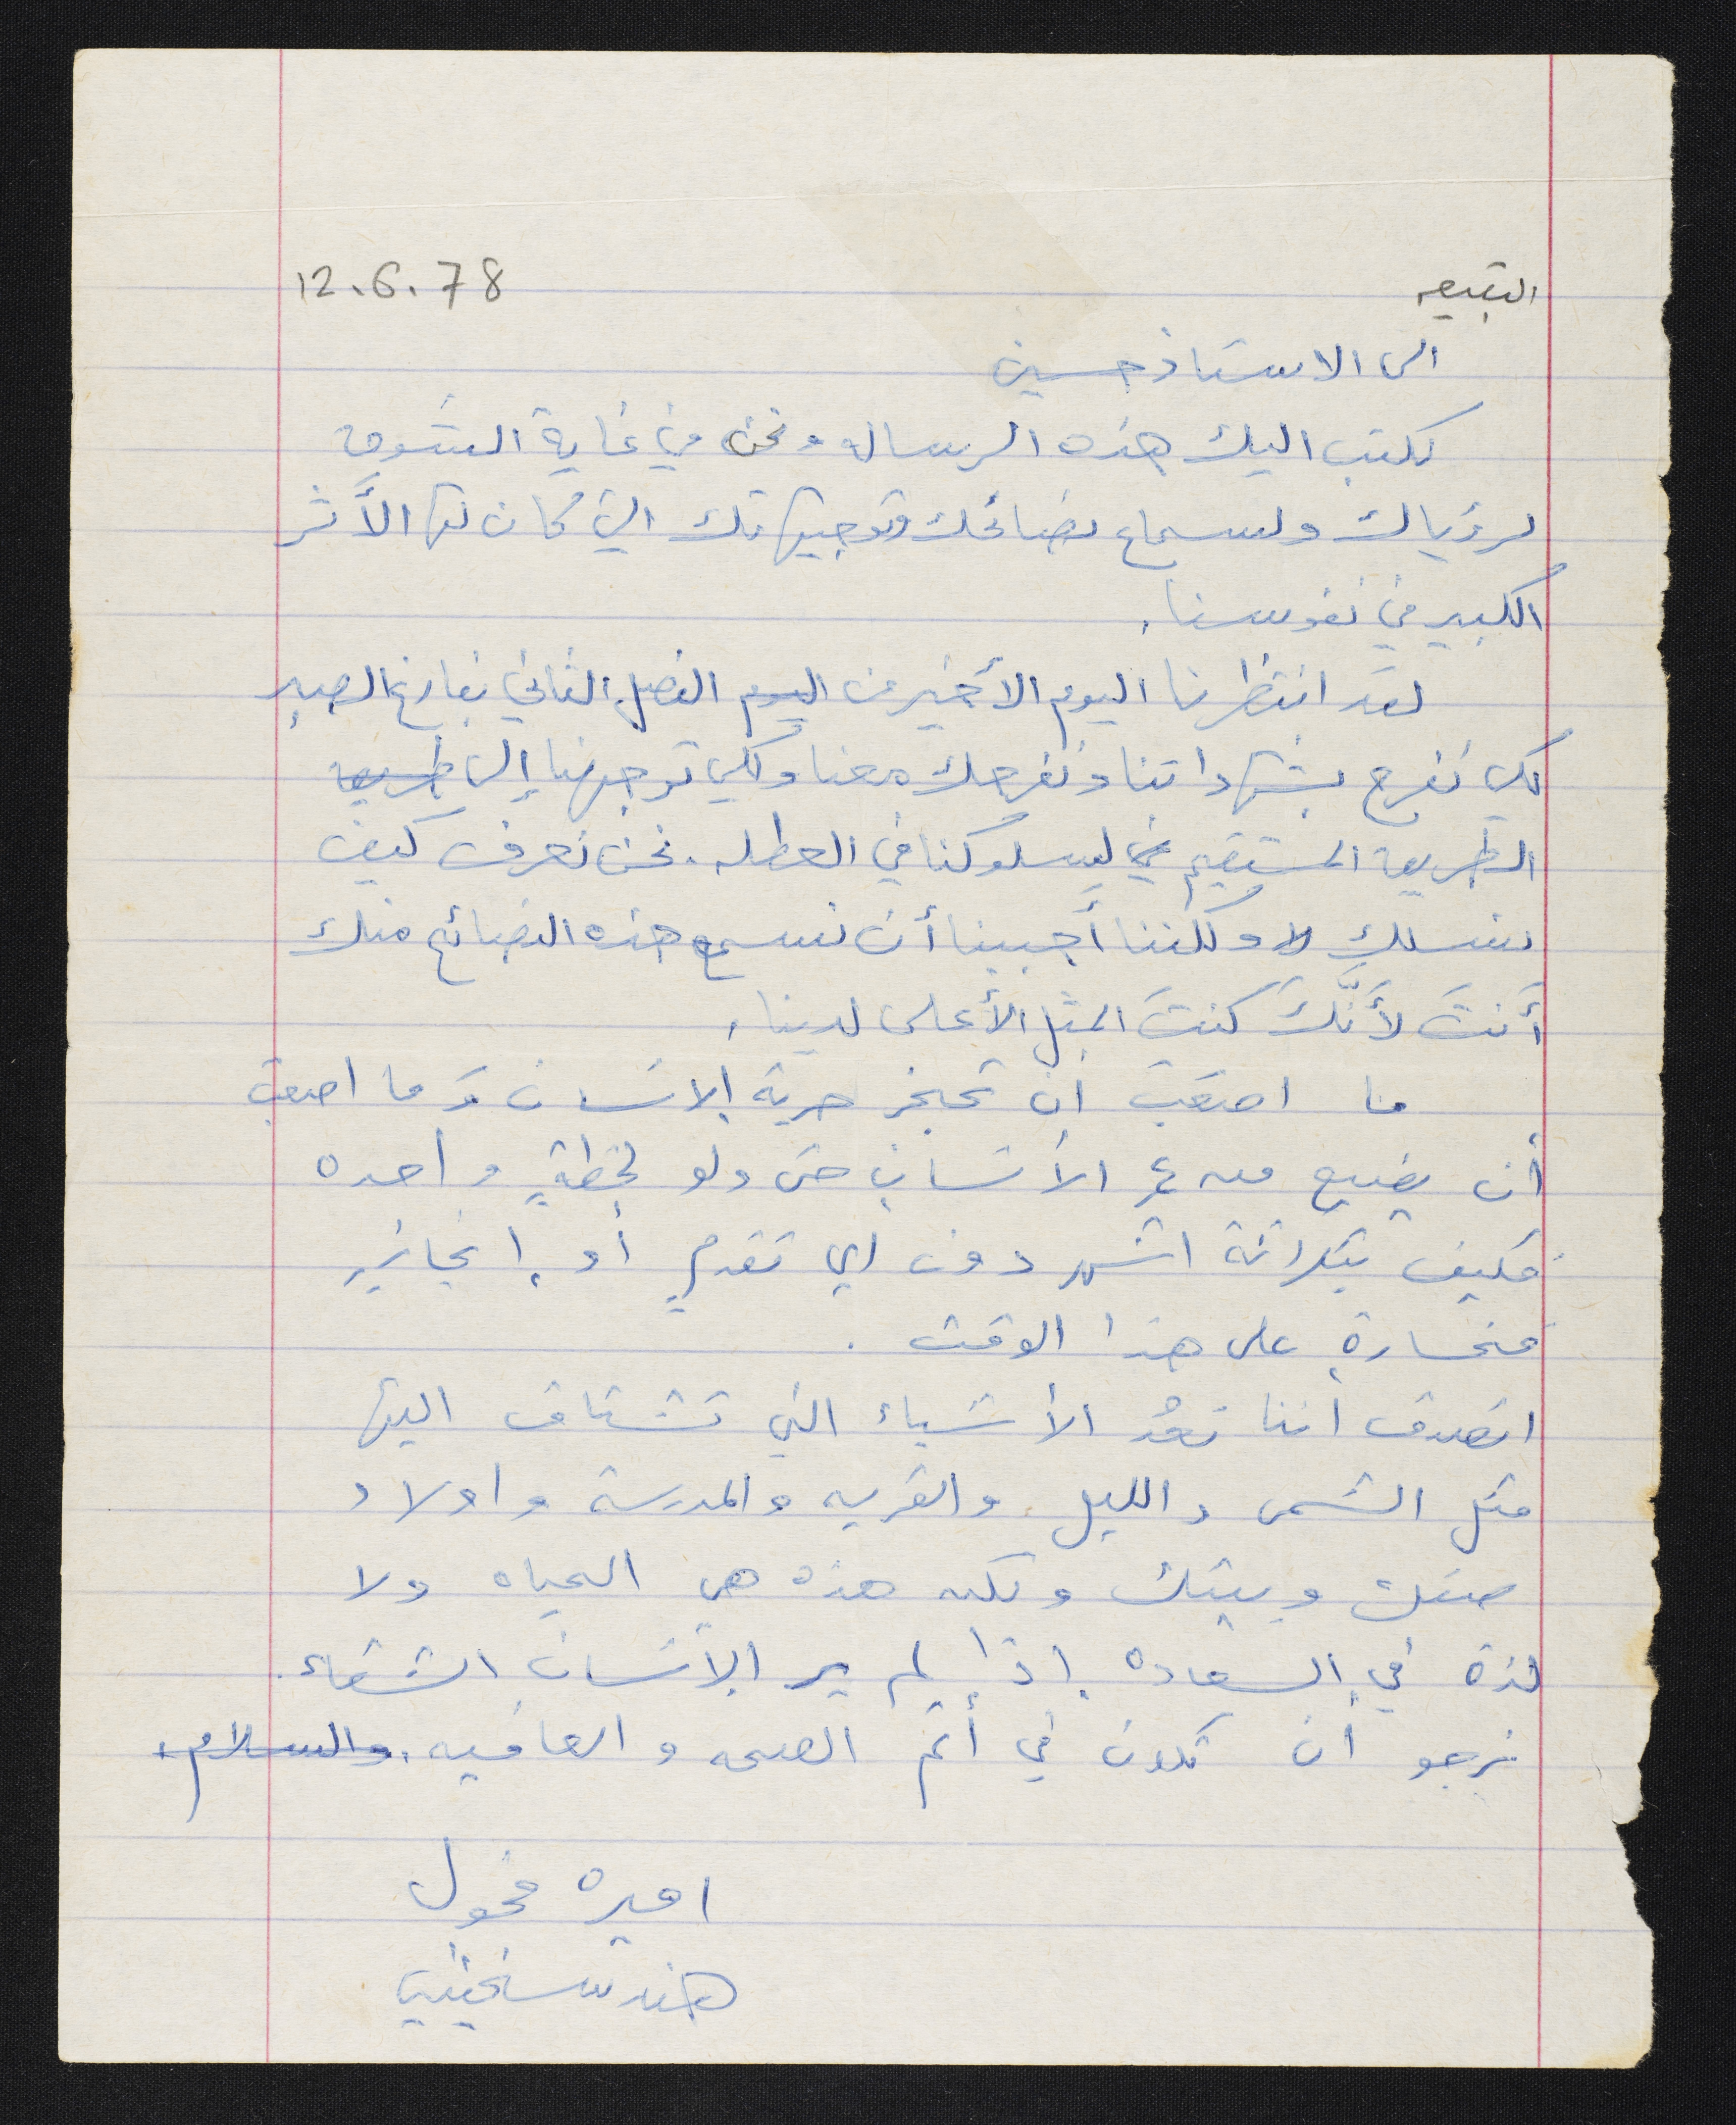 البقيعه 12.6.78
الى الاستاذ حسين
نكتب اليك هذه الرساله ونحن في غاية الشوق
لرؤياك ولسماع نصائحك وتوجيهاتك التي كان لها الأثر
الكبير في نفوسنا.
لقد انتظرنا اليوم الأخير من اليوم الفصل الثاني بفارغ الصبر
لكي نفرح بشهاداتنا ونفرحك معنا ولكي توجهنا إلى طريق
الطريق المستقيم في لسلوكنا في العطله. نحن نعرف كيف
نسلك ولكننا أحببنا أن نسمع هذه النصائح منك
أنتَ لأنَّكَ كنتَ المثل الأعلى لدينا.
ما اصعب ان تحجز حرية الانسان وَما اصعب
أن يضيع من عمر الأنسان حتى ولو لحظةٍ واحده
فكيف بثلاثة اشهر دون اي تقدمٍ أو إنجازٍ
فخسارة على هذا الوقت.
اتصدق اننا نعُد الأشياء التي تشتاق اليها
مثل الشمس والليل والقريه والمدرسة واولاد
صفك وبيتك ولكن هذه هي الحياه ولا
لذة في السعاده إذا لم ير الانسان الشقاء.
نرجو أن تكون في أتم الصحه والعافيه. والسلام.
اميره مخول
هند سخنيني